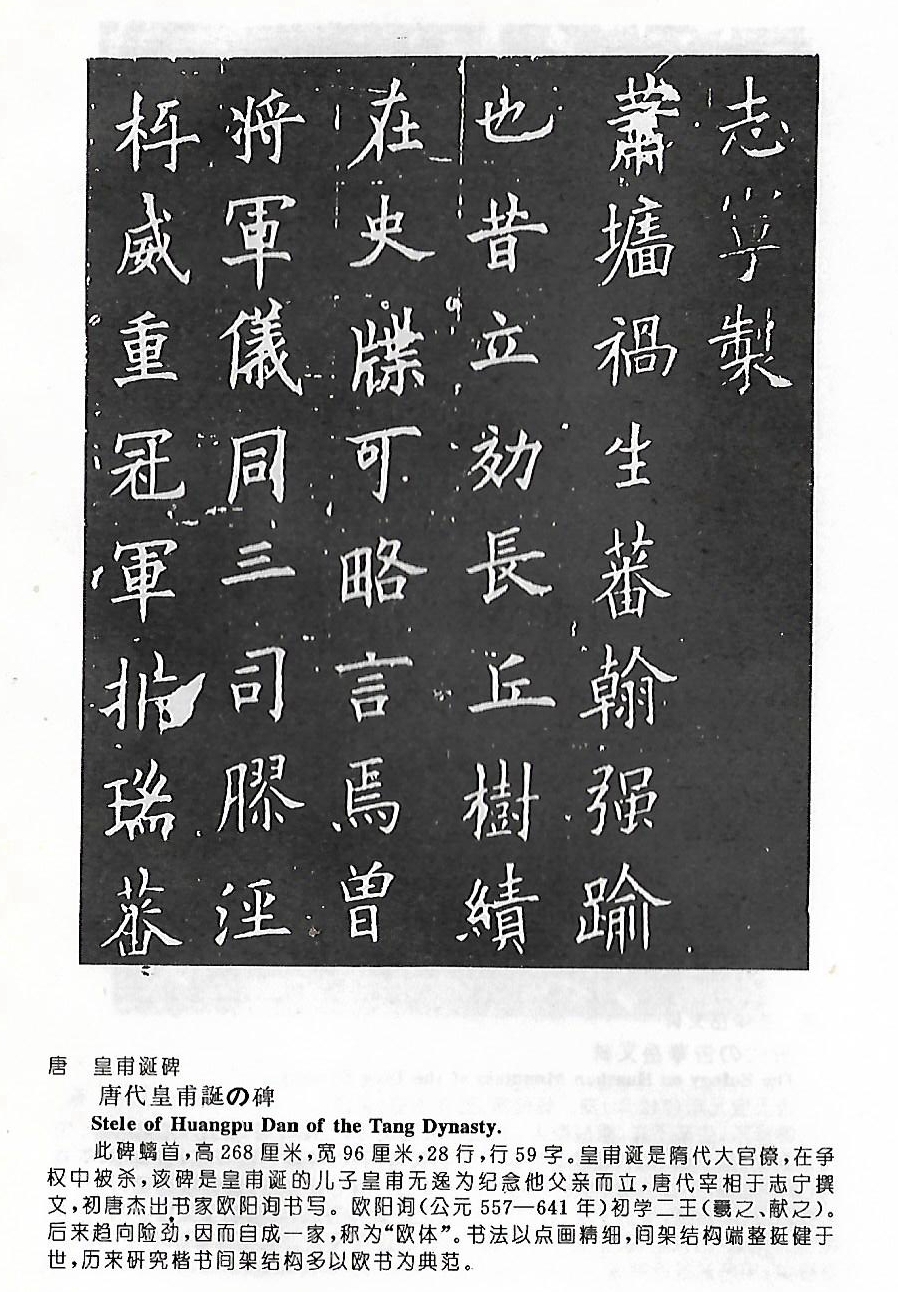 志寧製
蕭墻禍生蕃翰强踰
也昔立効長丘樹績
在史牒可略言焉曾
将軍儀同三司膠涇
威重冠軍瑞蕃
唐 皇甫诞碑
唐代皇甫誕の碑
Stele of Huangpu Dan of the Tang Dynasty.
此碑螭首,高268厘米,宽96厘米,28行,行59字。皇甫诞是隋代大官僚,在争
权中被杀,该碑是皇甫诞的儿子皇甫无逸为纪念他父亲而立,唐代宰相于志宁撰
文,初唐杰出书家欧阳询书写。欧阳询(公元557—641年)初学二王(羲之、献之)。
后来趋向险劲,因而自成一家,称为“欧体”。书法以点画精细,间架结构端整挺健于
世,历来研究楷书间架结构多以欧书为典范。